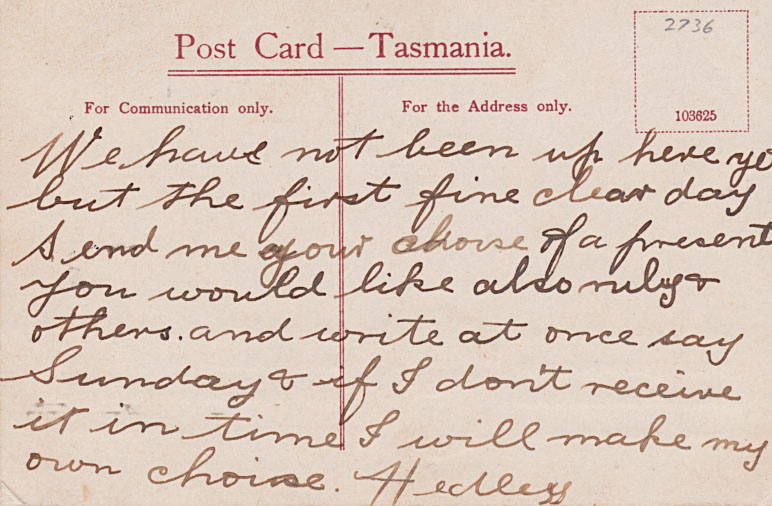 2736
Post Card — Tasmania.
For Communication only.
For the Address only.
103625
We have not been up here ye
but the first fine clear day
Send me your choise of a present
You would like also ruby &
others. and write at once say
Sunday & if I don't receive
it in time I will make my
own choise.